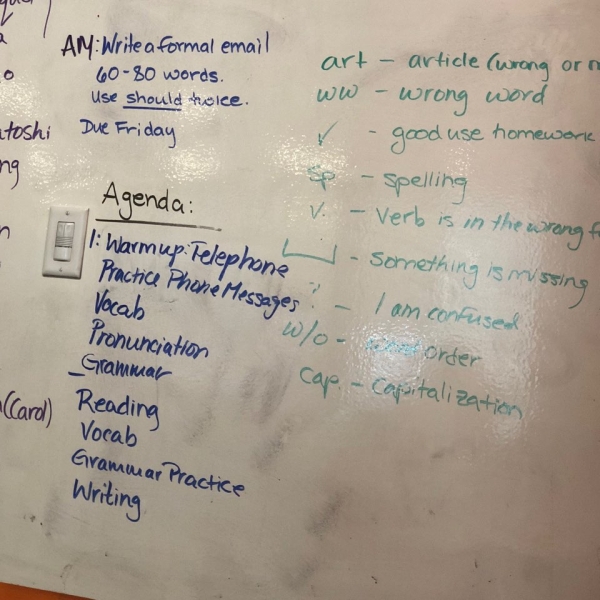 toshi
ng
(Carol)
AM: Write a formal email
60-80 words.
Use should twice.
Due Friday
Agenda:
1: Warmup: Telephone
Practice Phone Messages
Vocab
Pronunciation
Grammar
Reading
Vocab
Grammar Practice
Writing
art - article (wrong or
ww - wrong word
✓ - good use homework
sp - spelling
v. - Verb is in the wrong
- Something is missing
? - I am confused
w/o - word order
cap. - Capitalization